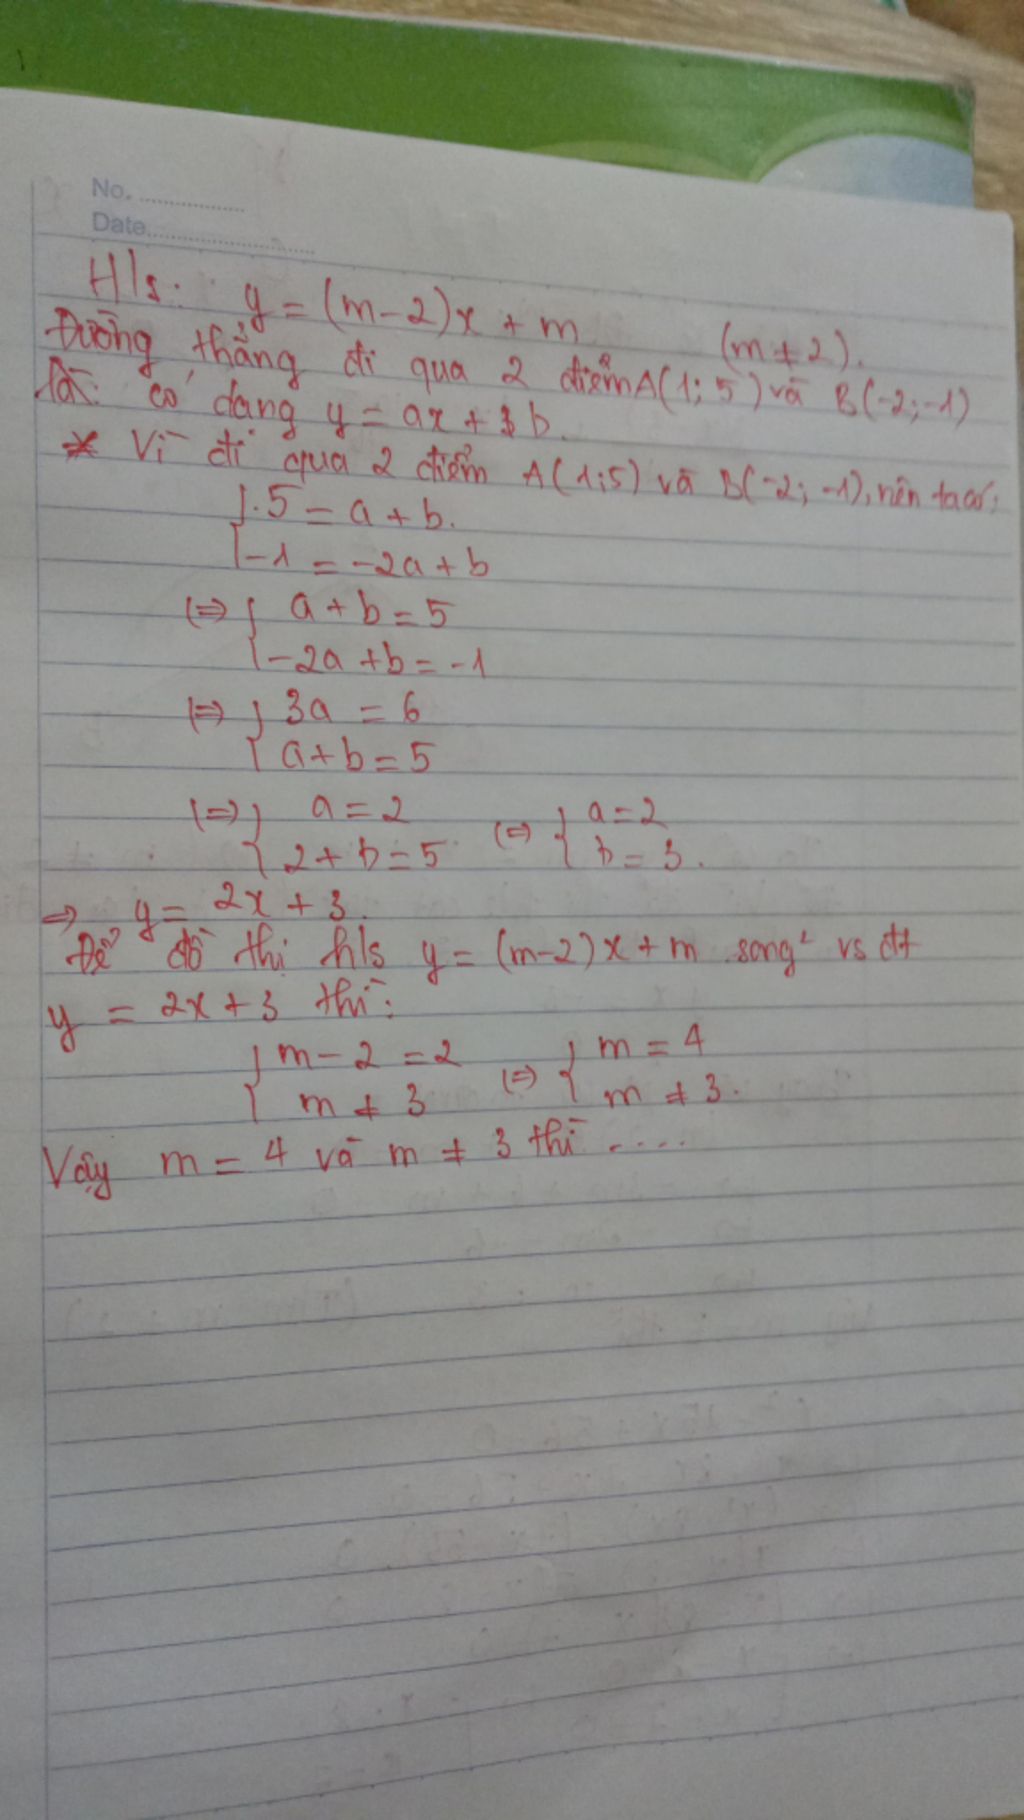 No.
Date
H/s: y = (m-2)x + m (m ≠ 2).
Đường thẳng đi qua 2 điểm A(1; 5) và B(-2; -1)
là: có dạng y = ax + b.
* Vì đi qua 2 điểm A(1;5) và B(-2; -1), nên ta có:
{ 5 = a + b.
-1 = -2a + b
(=) { a + b = 5
-2a + b = -1
(=) { 3a = 6
a + b = 5
(=) { a = 2 (=) { a = 2
2 + b = 5 b = 3.
=> y = 2x + 3.
Để đồ thị h/s y = (m-2)x + m song² vs đt
y = 2x + 3 thì:
{ m - 2 = 2 (=) { m = 4
m ≠ 3 m ≠ 3.
Vậy m = 4 và m ≠ 3 thì .....